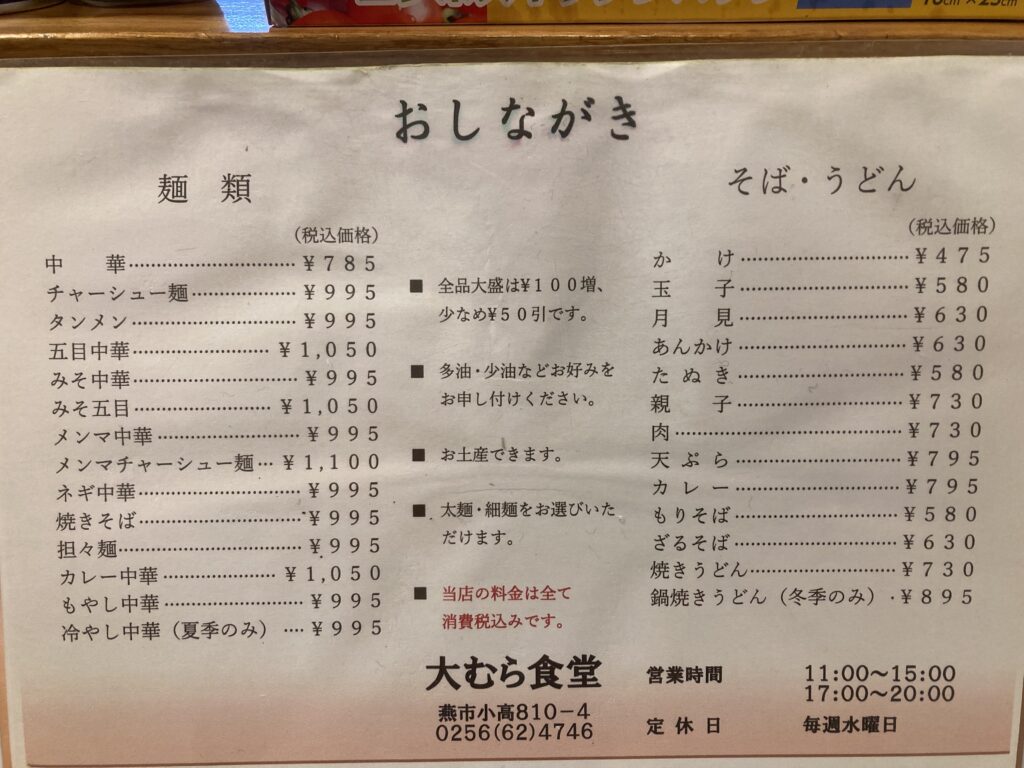 おしながき
麺　類
(税込価格)
中　華 ¥785
チャーシュー麺 ¥995
タンメン ¥995
五目中華 ¥1,050
みそ中華 ¥995
みそ五目 ¥1,050
メンマ中華 ¥995
メンマチャーシュー麺 ¥1,100
ネギ中華 ¥995
焼きそば ¥995
担々麺 ¥995
カレー中華 ¥1,050
もやし中華 ¥995
冷やし中華（夏季のみ） ¥995
■ 全品大盛は¥100増、
少なめ¥50引です。
■ 多油・少油などお好みを
お申し付けください。
■ お土産できます。
■ 太麺・細麺をお選びいた
だけます。
■ 当店の料金は全て
消費税込みです。
そば・うどん
(税込価格)
か　け ¥475
玉　子 ¥580
月　見 ¥630
あんかけ ¥630
たぬき ¥580
親　子 ¥730
肉 ¥730
天ぷら ¥795
カレー ¥795
もりそば ¥580
ざるそば ¥630
焼きうどん ¥730
鍋焼きうどん（冬季のみ） ¥895
大むら食堂
燕市小高810−4
0256(62)4746
営業時間 11:00〜15:00
17:00〜20:00
定休日 毎週水曜日